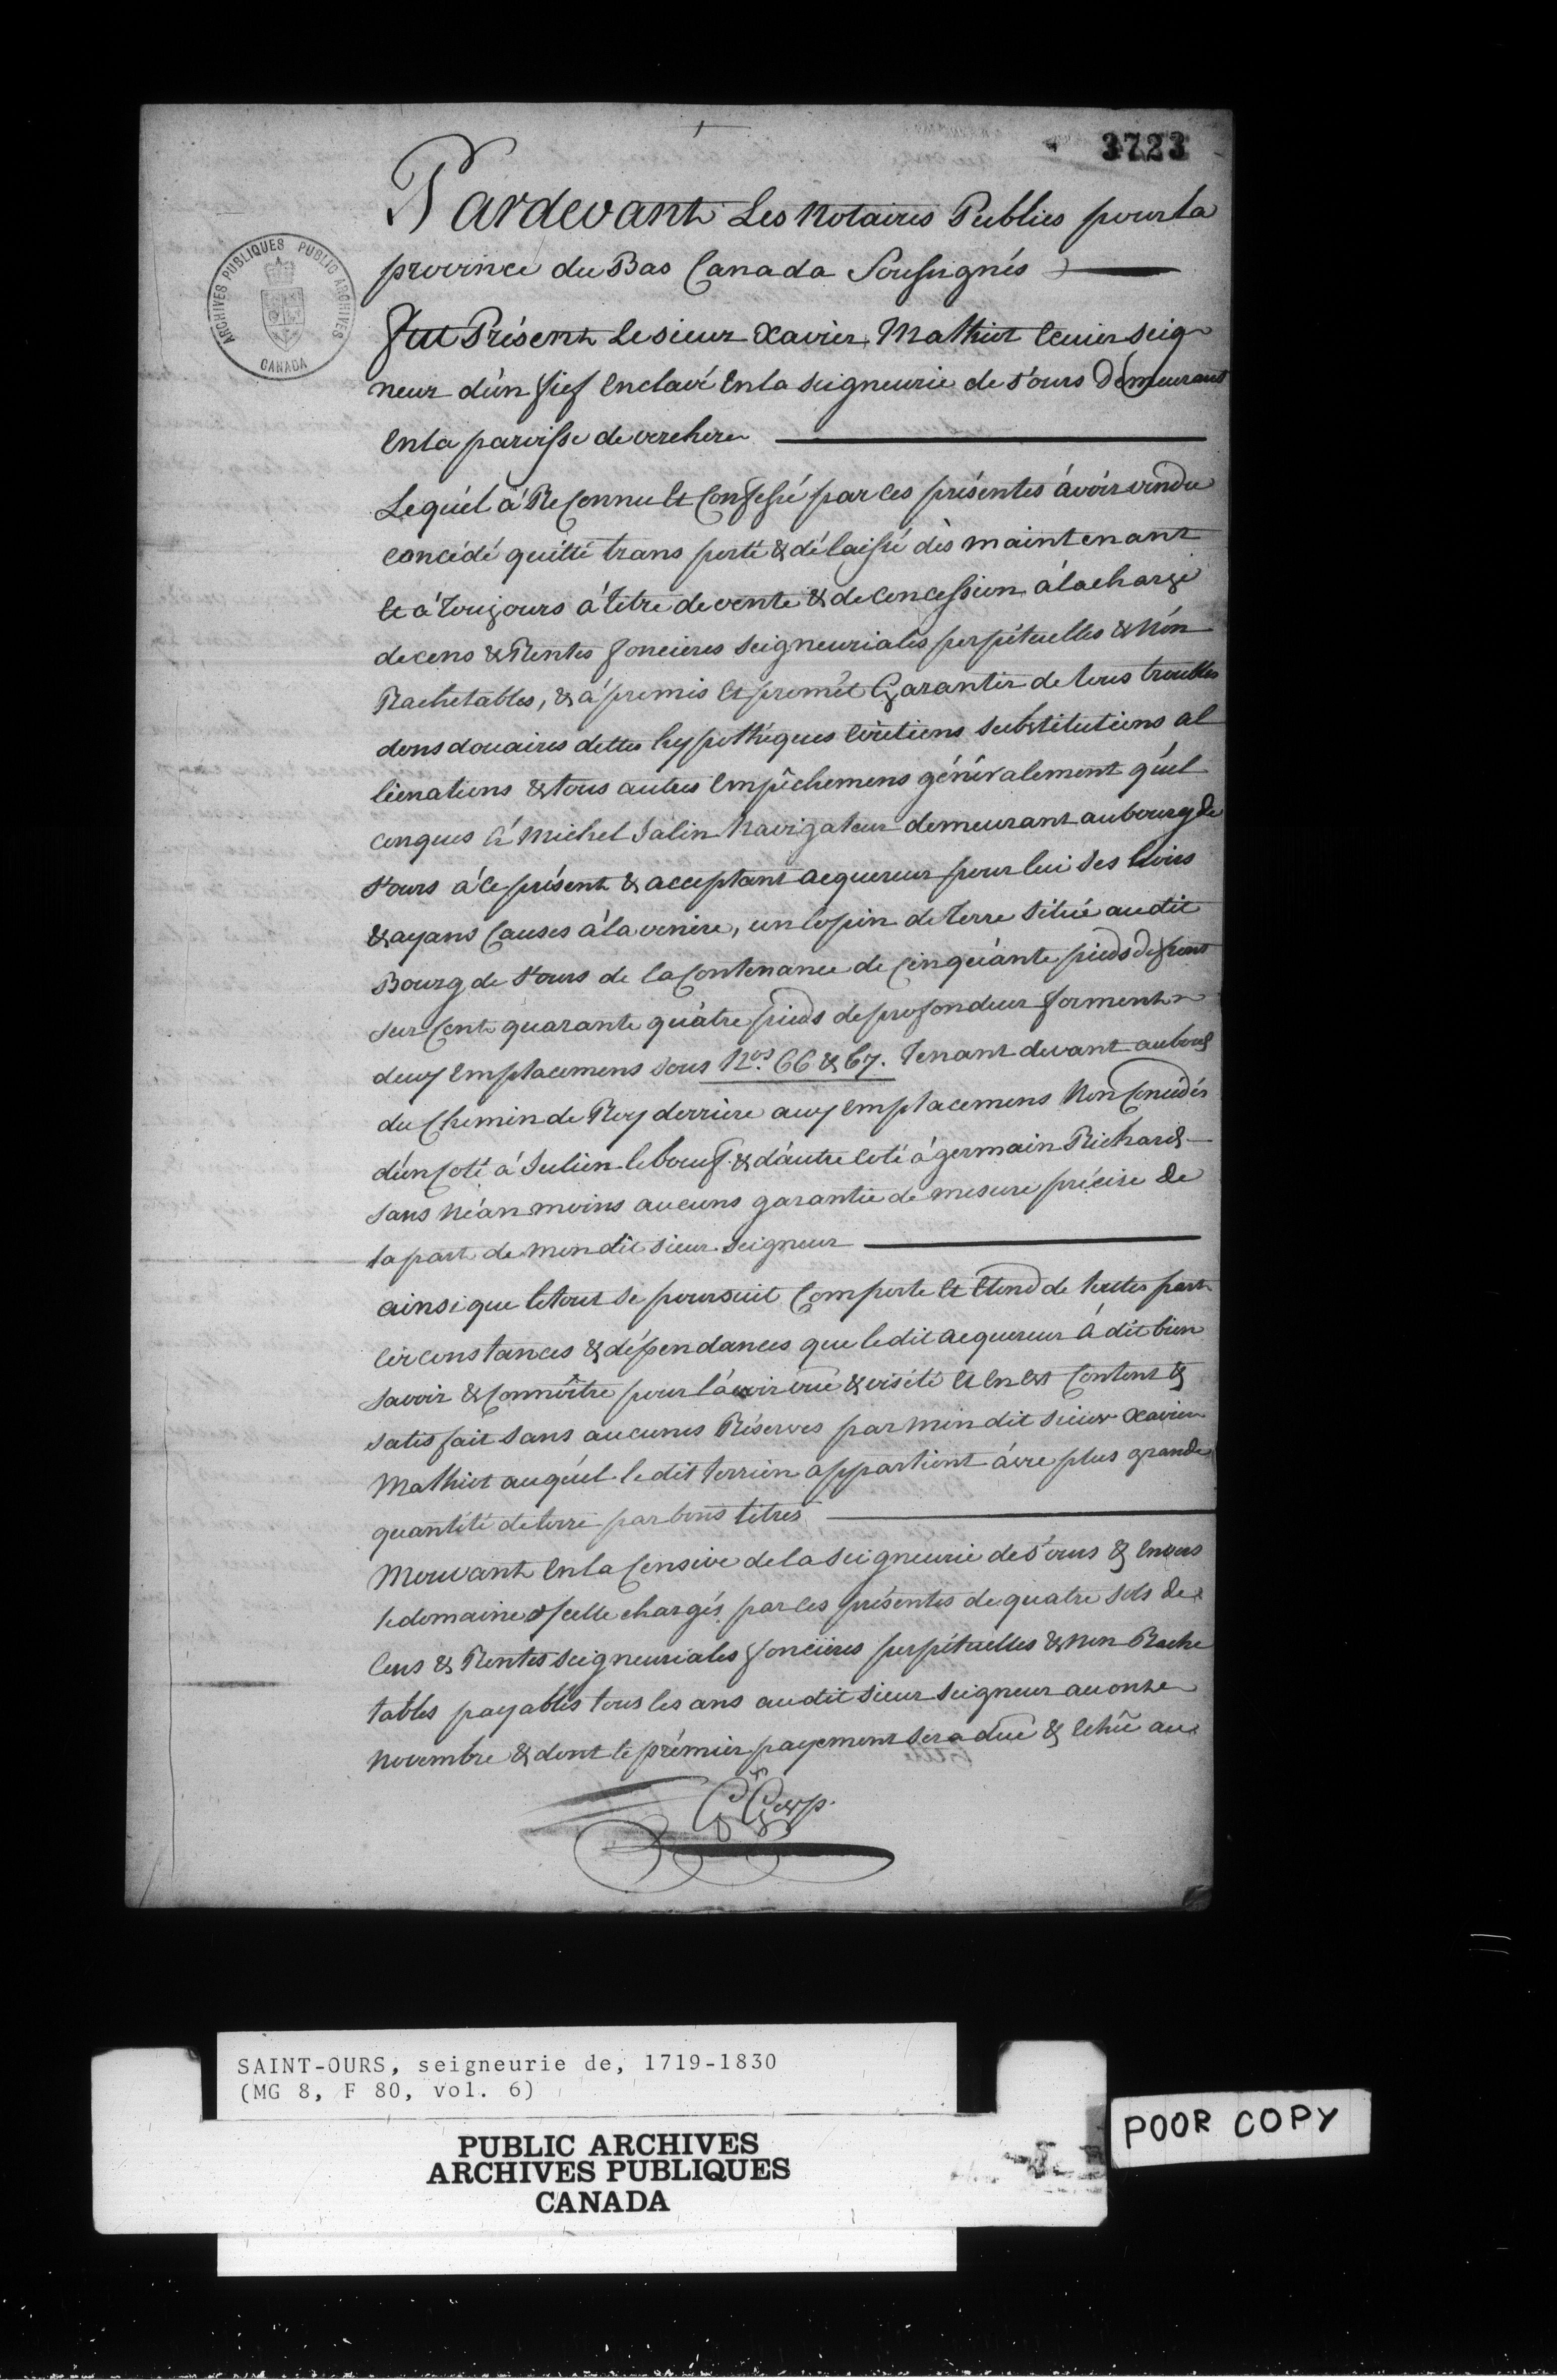 3723
Pardevant Les Notaires Publics pour la
province du Bas Canada Soussignés
Fut Présent Le sieur Xavier Mathiot Ecuier seig
neur d'un fief Enclavé En la seigneurie de St ours Démeurant
En la paroisse de verchere
Lequél à Reconnu Et Confessé par Ces présentes ávoir vendu
concédé quitté trans porté & délaissé dès maintenant
Et á toujours á titre de vente & de Concession á la charge
de cens & Rentes foncieres Seigneuriales perpétuelles & Nón
Rachetables, & á promis Et promét Garantir de tous troubles
dons douaires dettes hypothéques Evictions substitutions al
lienations & tous autres Empêchemens générálement quél
conques à Michel Salin Navigateur demeurant au bourg de
St ours á Ce présent & acceptant acquereur pour lui Ses hoirs
& ayans Causes á l'a venire, un lopin de terre situé au dit
Bourg de St ours de la Contenance de Cinquánte pieds de front
sur Cent quarante quátre pieds de profondeur forment
deux Emplacemens sous Nos. 66 & 67. Tenant devant au bout
du Chemin de Roy derriere aux Emplacemens Non Concédés
d'un Coté á Julien leboeuf & d'áutre Coté á germain Richard
sans Néan moins aucuns garantie de mesure précise de
la part de mon dit sieur seigneur
ainsi que le tout se poursuit Comporte Et Etend de toutes part
Circonstances & dépendances que le dit acquereur á dit bien
savoir & Connoître pour l'ávoir vue & visité Et En Est Content &
satisfait sans aucunes Réserves par mon dit sieur Xavier
Mathiot auquél le dit terrein appartient ávec plus grande
quantité de terre par bons titres
Mouvant En la Censive de la Seigneurie de St ours & Envers
le domaine d'Icelle chargés par Ces présentes de quatre sols de
Cens & Rentes seigneuriales foncieres perpétuelles & Non Rache
tables payables tous les ans au dit sieur Seigneur au onze
Novembre & dont le prémier payement sera duë & Echû au
ARCHIVES PUBLIQUES PUBLIC ARCHIVES
CANADA
SAINT-OURS, seigneurie de, 1719-1830
(MG 8, F 80, vol. 6)
PUBLIC ARCHIVES
ARCHIVES PUBLIQUES
CANADA
POOR COPY